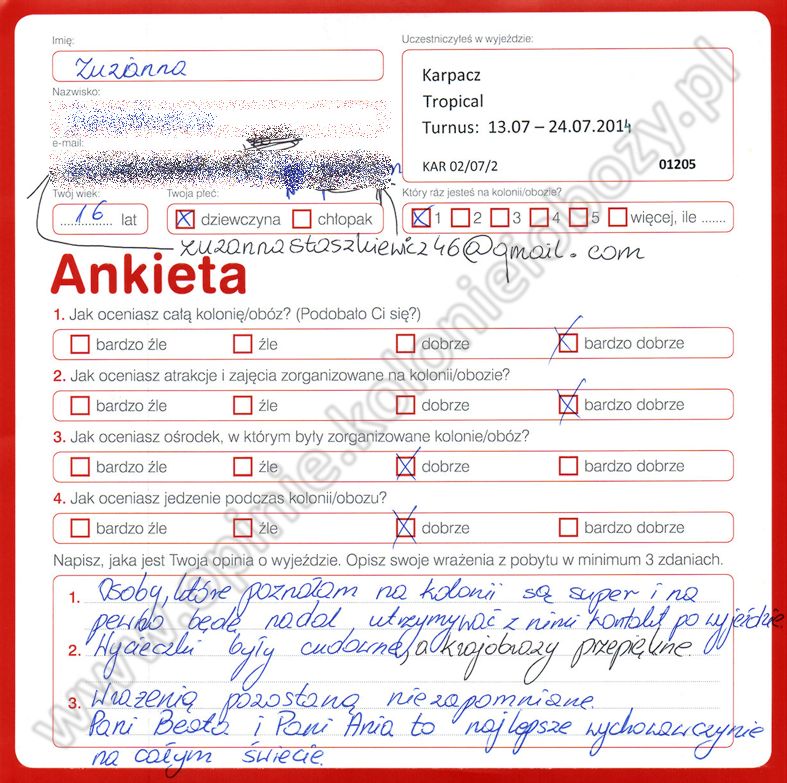 Imię:
Zuzanna
Nazwisko:
e-mail:
Twój wiek:
16 lat
Twoja płeć:
dziewczyna chłopak
Uczestniczyłeś w wyjeździe:
Karpacz
Tropical
Turnus: 13.07 – 24.07.2014
KAR 02/07/2 01205
Który raz jesteś na kolonii/obozie?
1 2 3 4 5 więcej, ile .......
zuzannastaszkiewicz46@gmail.com
Ankieta
1. Jak oceniasz całą kolonię/obóz? (Podobało Ci się?)
bardzo źle źle dobrze bardzo dobrze
2. Jak oceniasz atrakcje i zajęcia zorganizowane na kolonii/obozie?
bardzo źle źle dobrze bardzo dobrze
3. Jak oceniasz ośrodek, w którym były zorganizowane kolonie/obóz?
bardzo źle źle dobrze bardzo dobrze
4. Jak oceniasz jedzenie podczas kolonii/obozu?
bardzo źle źle dobrze bardzo dobrze
Napisz, jaka jest Twoja opinia o wyjeździe. Opisz swoje wrażenia z pobytu w minimum 3 zdaniach.
1. Osoby, które poznałam na kolonii są super i na
pewno będę nadal utrzymywać z nimi kontakt po wyjeździe.
2. Wycieczki były cudowne, a krajobrazy przepiękne.
3. Wrażenia pozostaną niezapomniane.
Pani Beata i Pani Ania to najlepsze wychowawczynie
na całym świecie.
www.opinie.kolonieiobozy.pl